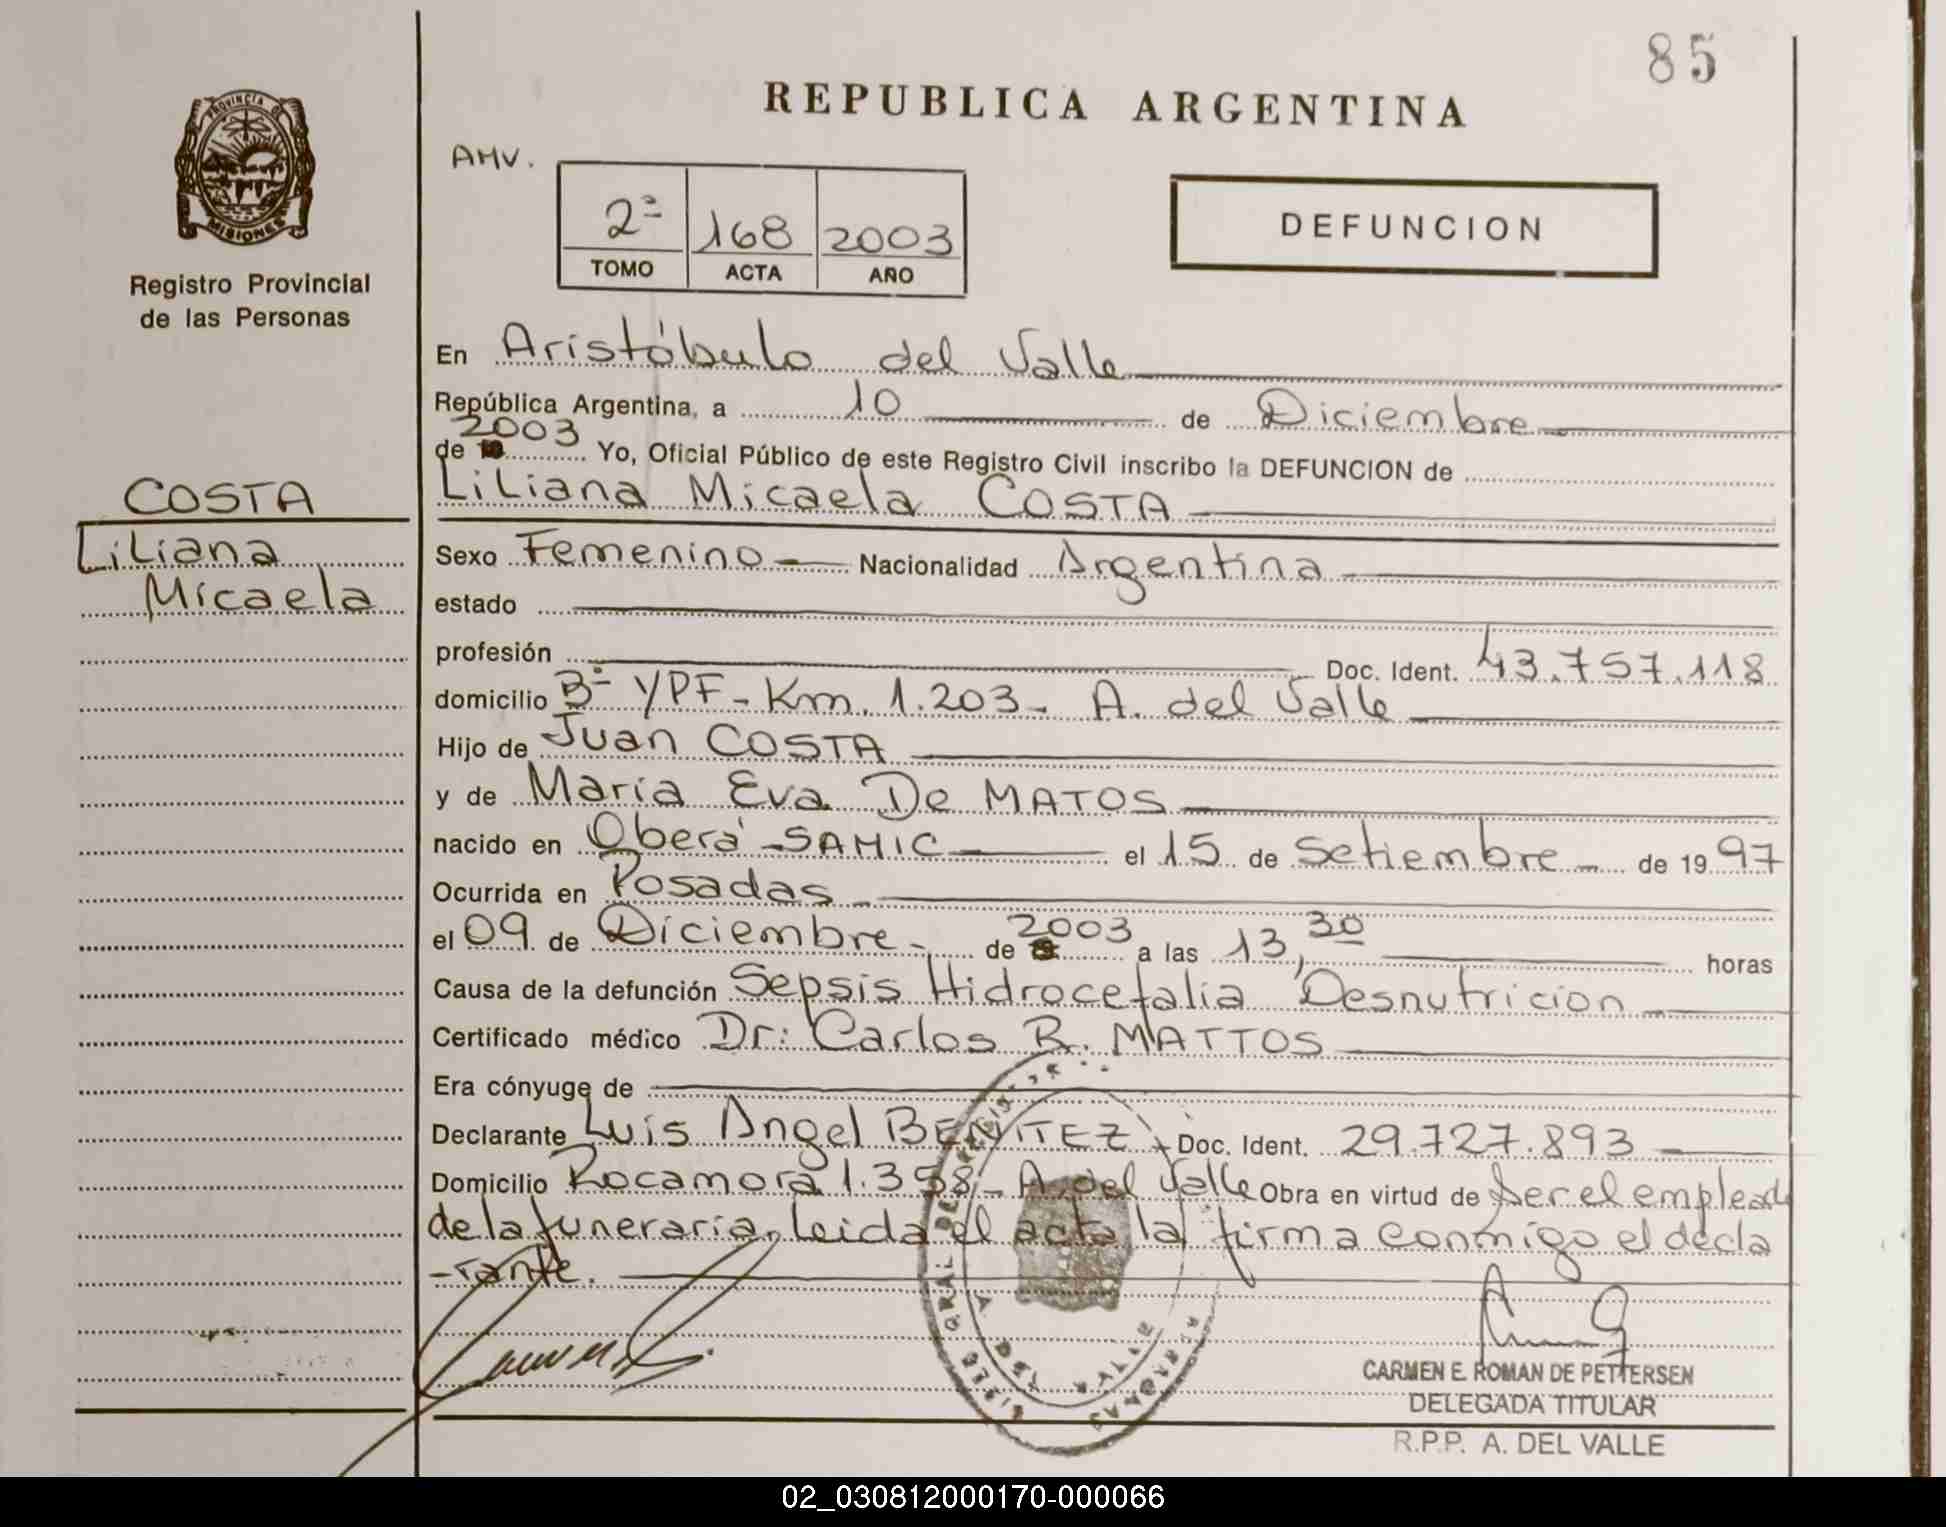 85
REPUBLICA ARGENTINA
PROVINCIA DE
MISIONES
Registro Provincial
de las Personas
AMV.
2ª 168 2003
TOMO ACTA AÑO
DEFUNCION
En Aristóbulo del Valle
República Argentina, a 10 de Diciembre
2003
de Yo, Oficial Público de este Registro Civil inscribo la DEFUNCION de
Liliana Micaela COSTA
COSTA
Liliana
Micaela
Sexo Femenino Nacionalidad Argentina
estado
profesión Doc. Ident. 43.757.118
domicilio Bº YPF - Km. 1.203 - A. del Valle
Hijo de Juan COSTA
y de María Eva De MATOS
nacido en Oberá - SAMIC el 15 de Setiembre de 1997
Ocurrida en Posadas
el 09 de Diciembre de 2003 a las 13,30 horas
Causa de la defunción Sepsis Hidrocefalia Desnutricion
Certificado médico Dr: Carlos R. MATTOS
Era cónyuge de
Declarante Luis Angel BENITEZ Doc. Ident. 29.727.893
Domicilio Rocamora 1.358 - A. del Valle Obra en virtud de ser el empleado
de la funeraria, leida el acta la firma conmigo el decla
-rante.
CARMEN E. ROMAN DE PETTERSEN
DELEGADA TITULAR
R.P.P. A. DEL VALLE
02_030812000170-000066